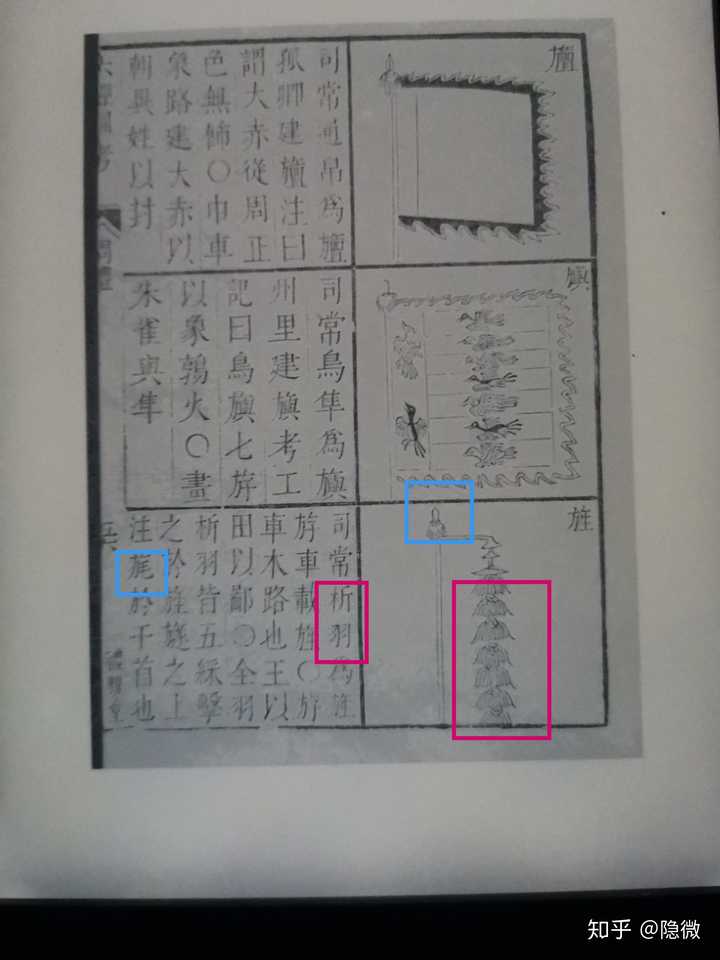 旜
司常通帛爲旜
孤卿建旜注曰
謂大赤從周正
色無飾〇巾車
象路建大赤以
朝異姓以封
旟
司常鳥隼爲旟
州里建旟考工
記曰鳥旟七斿
以象鶉火〇畫
朱雀與隼
旌
司常析羽爲旌
斿車載旌〇斿
車木路也王以
田以鄙〇全羽
析羽皆五綵繫
之於旌旞之上
注旄於干首也
周禮
知乎 @隐微